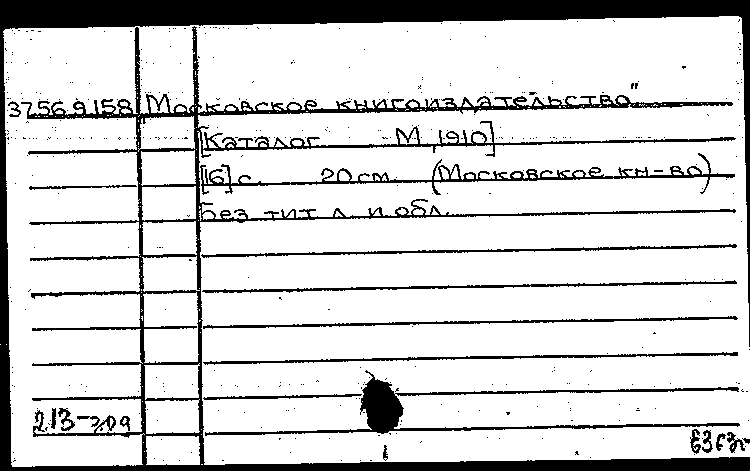 3756.9.158 "Московское книгоиздательство"
[Каталог. - М., 1910]
[16] с. 20 см. (Московское кн-во)
Без тит. л. и обл.
213-709